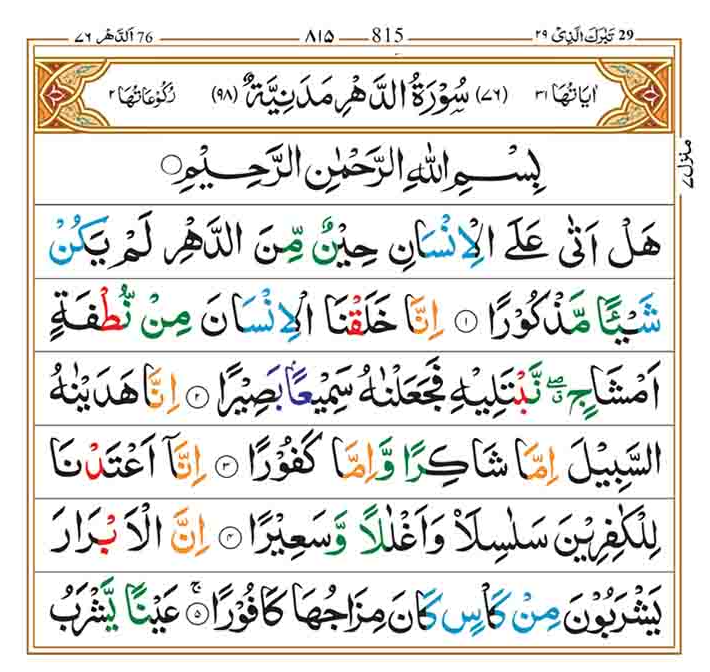 76 اَلدَّهْر ٧٦ ٨١٥ 815 29 تَبٰرَكَ الَّذِیْ ٢٩
اٰيَاتُهَا ٣١ (٧٦) سُوْرَةُ الدَّهْرِ مَدَنِيَّةٌ (٩٨) رُكُوْعَاتُهَا ٢
منزل ٧
بِسْمِ اللّٰهِ الرَّحْمٰنِ الرَّحِيْمِ
هَلْ اَتٰى عَلَى الْاِنْسَانِ حِيْنٌ مِّنَ الدَّهْرِ لَمْ يَكُنْ
شَيْـًٔا مَّذْكُوْرًا ١ اِنَّا خَلَقْنَا الْاِنْسَانَ مِنْ نُّطْفَةٍ
اَمْشَاجٍ ۖق نَّبْتَلِيْهِ فَجَعَلْنٰهُ سَمِيْعًۢا بَصِيْرًا ٢ اِنَّا هَدَيْنٰهُ
السَّبِيْلَ اِمَّا شَاكِرًا وَّاِمَّا كَفُوْرًا ٣ اِنَّآ اَعْتَدْنَا
لِلْكٰفِرِيْنَ سَلٰسِلَا۟ وَاَغْلٰلًا وَّسَعِيْرًا ٤ اِنَّ الْاَبْرَارَ
يَشْرَبُوْنَ مِنْ كَاْسٍ كَانَ مِزَاجُهَا كَافُوْرًا ۚ ٥ عَيْنًا يَّشْرَبُ